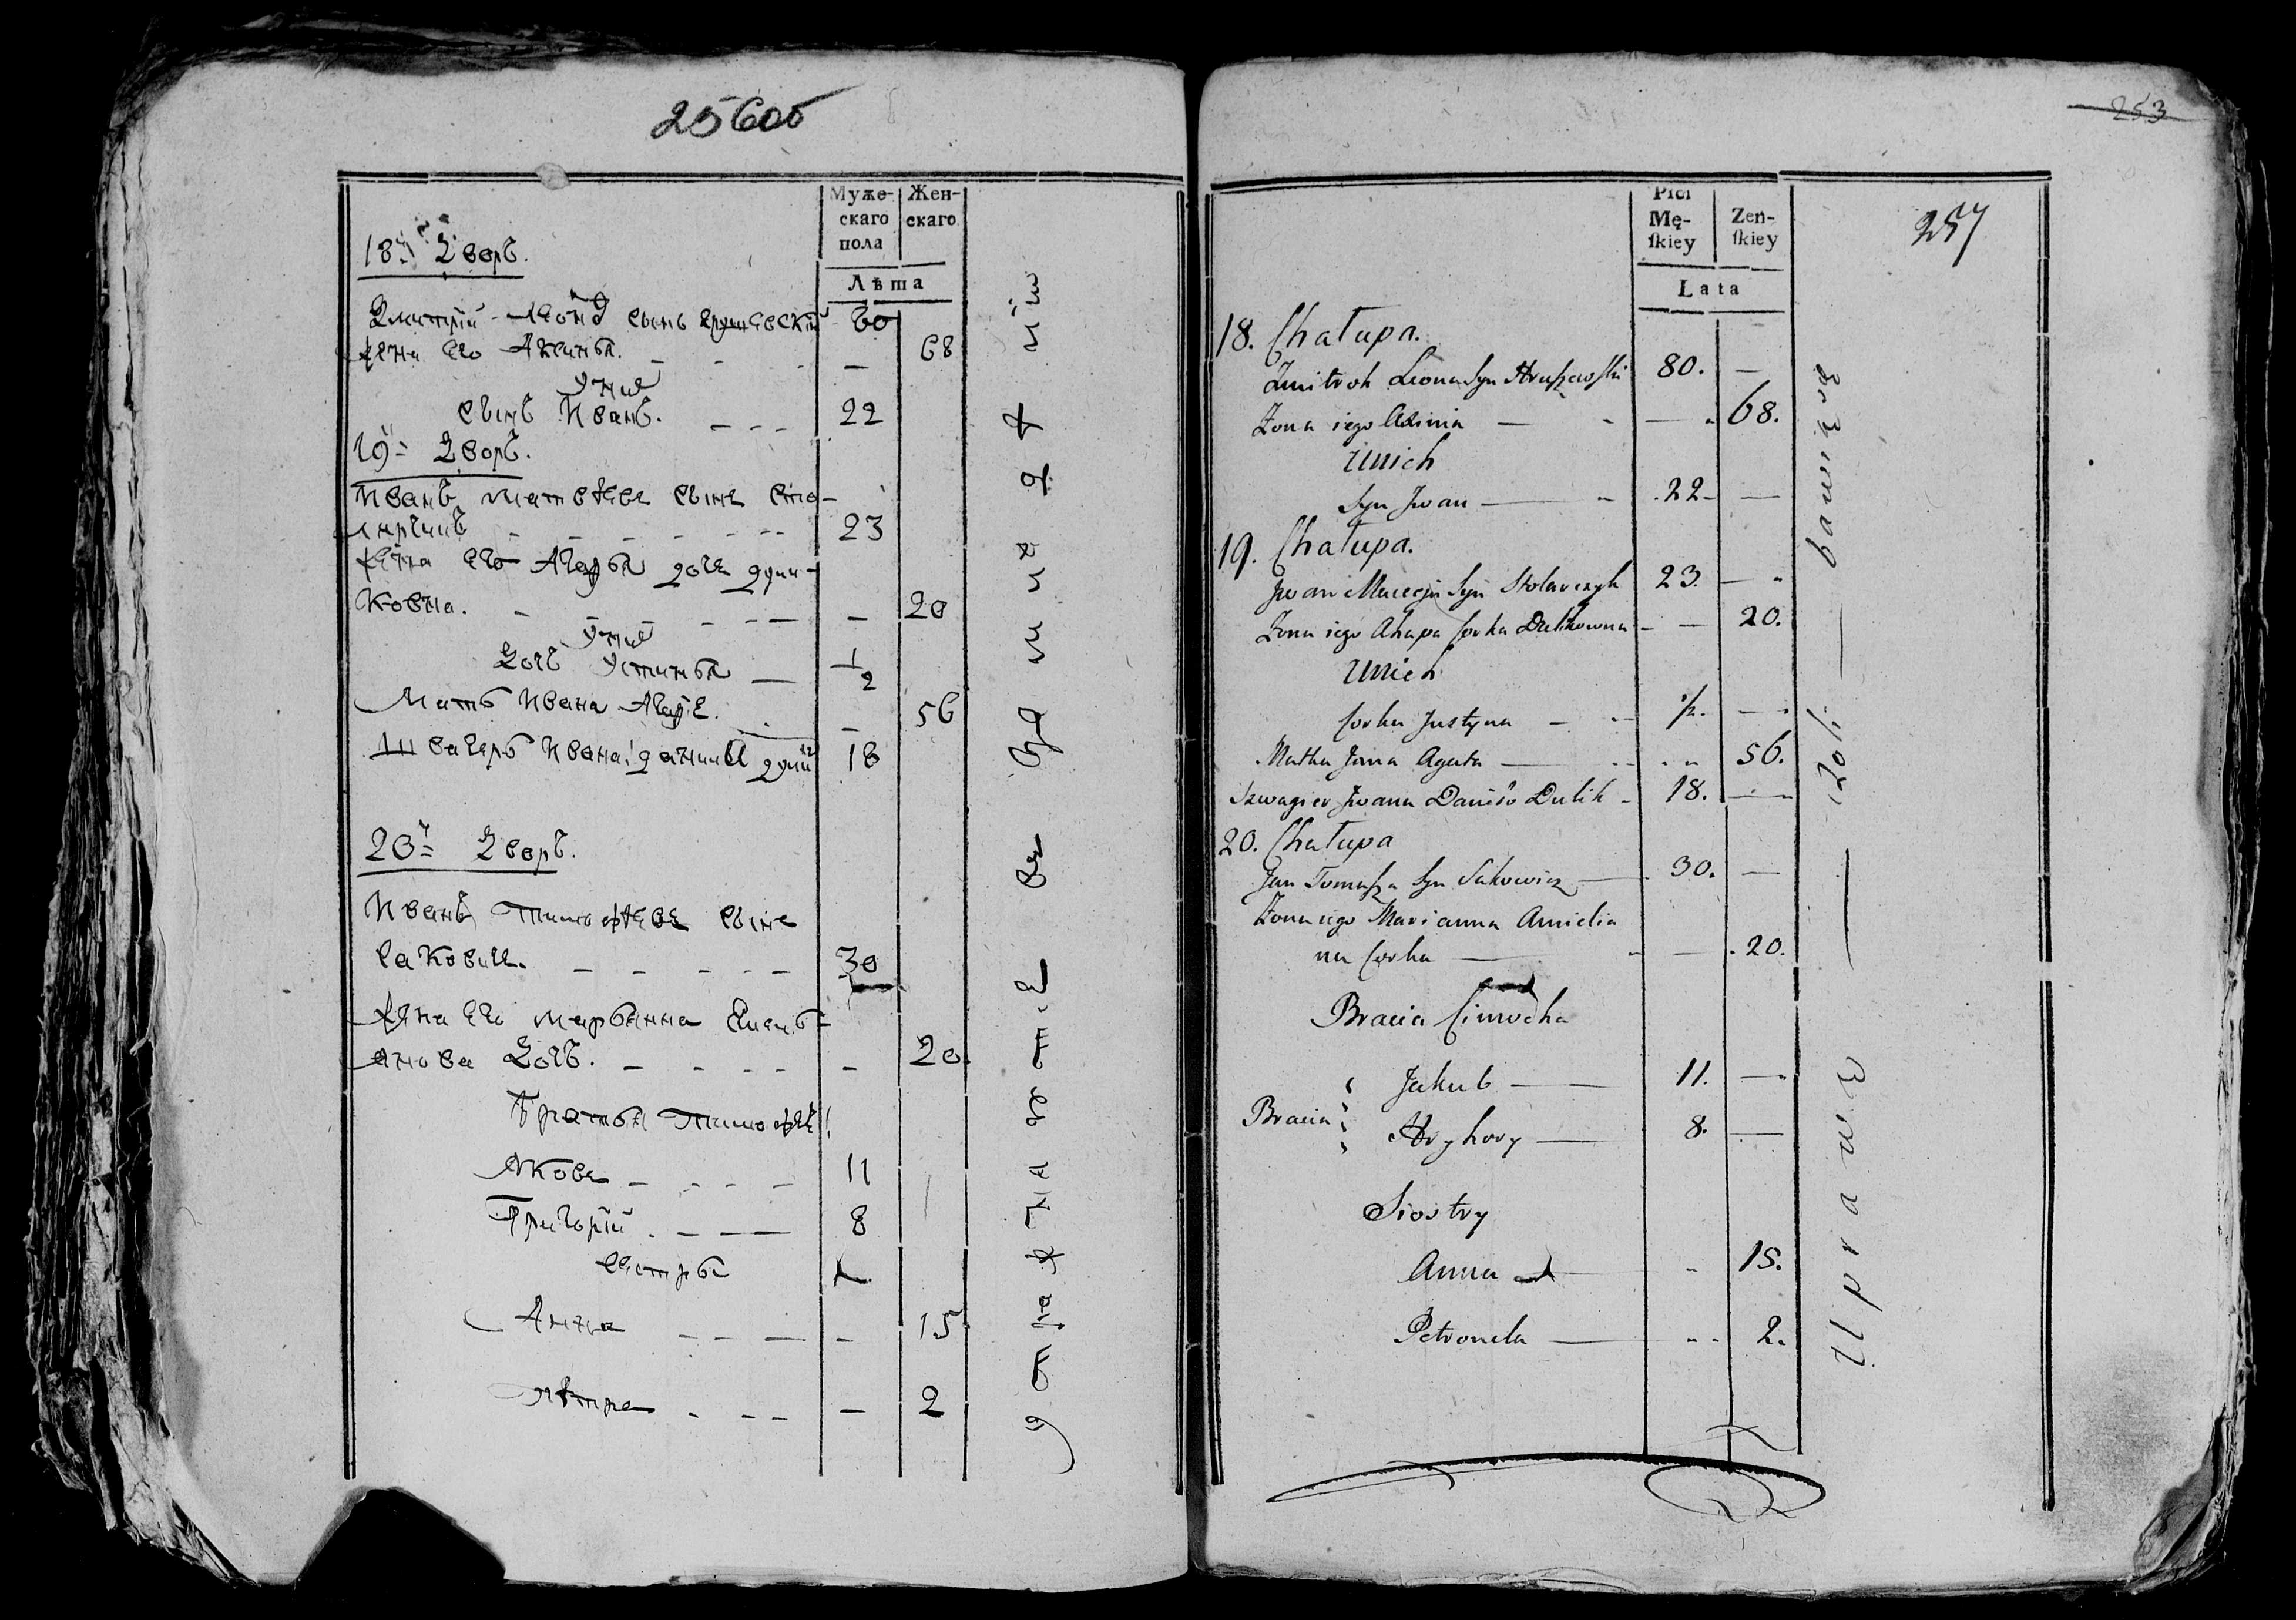 256об
Муже-
скаго
пола
Жен-
скаго
Лѣта
18й Дворъ.
Дмитрій Леона сынъ Грушевскій 60
Жена его Аксинья. — 68
У них
сынъ Иванъ. 22
19й Дворъ.
Иванъ Матвѣевъ сынъ Сто-
лярчикъ 23
Жена его Агафья дочь Дули-
ковна. — 20
У них
Дочь Устинья — 1/2
Мать Ивана Агафʼя. — 56
Швагеръ Ивана Данила Дулик 18
20й Дворъ.
Иванъ Тимофѣевъ сынъ
Саковичъ. 30
Жена его Марьянна Емель-
янова Дочь. — 20.
Братья Тимофѣя
Яковъ 11
Григорій 8
Сестры
Анна — 15
Пѣтра — 2
253
257
Płci
Mę-
ſkiey
Zeń-
ſkiey
Lata
18. Chałupa.
Zmitroh Leona Syn Hruszewſki 80. —
Żona iego Axinia — 68.
Unich
Syn Jwan 22 —
19. Chałupa.
Jwan Macieja Syn Stolarczyk 23. —
Żona iego Ahapa Corka Dulikowna — 20.
Unich
Corka Justyna 1/2. —
Matka Jwana Agata 56.
Szwagier Jwana Daniło Dulik 18. —
20. Chałupa
Jan Tomaſza Syn Sakowicz 30. —
Żona iego Marianna Amielia
na Corka — 20.
Bracia Cimocha
Jakub 11. —
Bracia Hryhory 8. —
Siostry
Anna 15.
Petronela 2.
Uprawę — roli — bawiesię